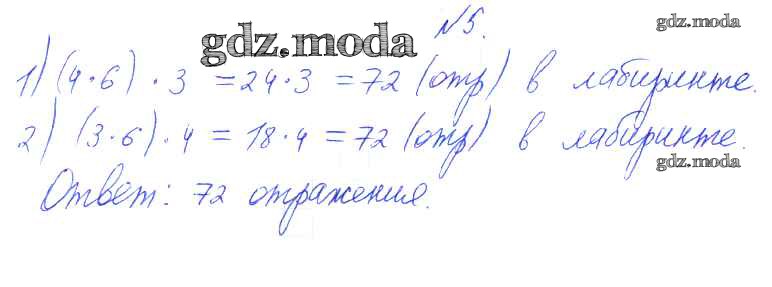 №5.
gdz.moda
gdz.moda
1) (4·6)·3 =24·3 =72 (отр) в лабиринте.
2) (3·6)·4 = 18·4 =72 (отр) в лабиринте.
gdz.moda
Ответ: 72 отражения.